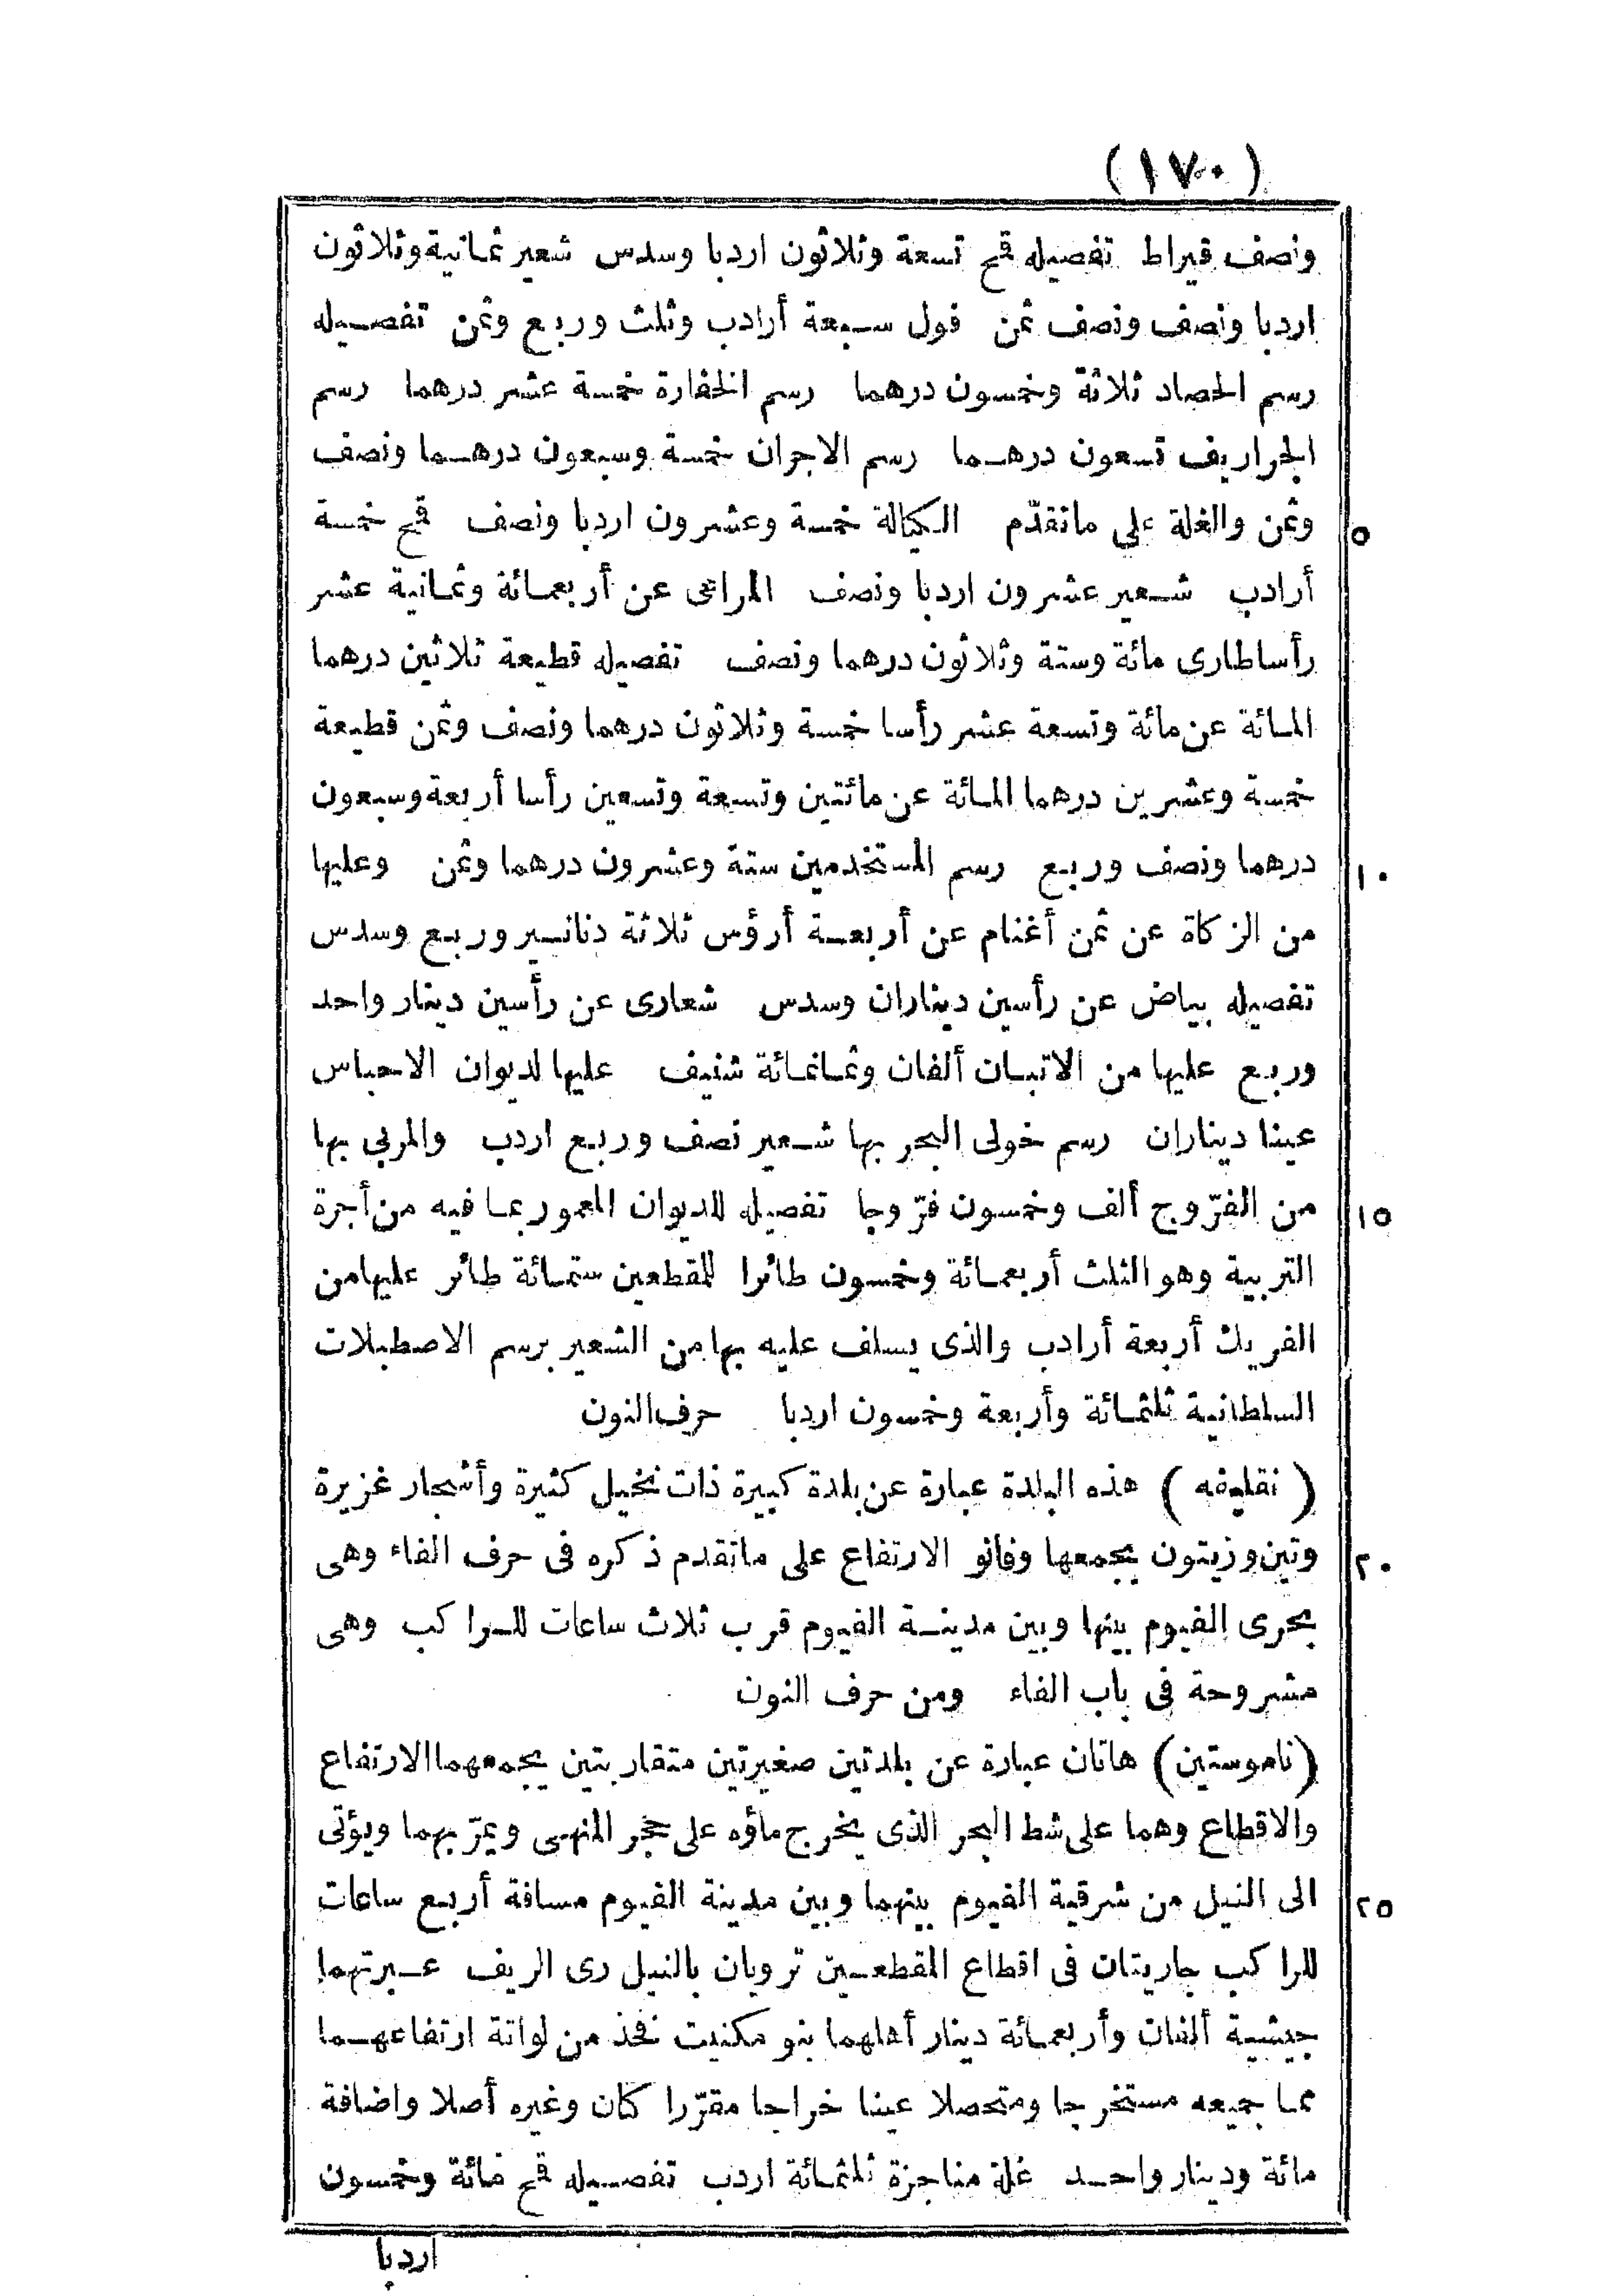 (١٧٠)
ونصف قيراط تفصيله قمح تسعة وثلاثون اردبا وسدس شعير ثمانية وثلاثون
اردبا ونصف ونصف ثمن فول سبعة أرادب وثلث وربع وثمن تفصيله
رسم الحصاد ثلاثة وخمسون درهما رسم الخفارة خمسة عشر درهما رسم
الجراريف تسعون درهما رسم الاجران خمسة وسبعون درهما ونصف
٥ وثمن والغلة على ماتقدّم الكيالة خمسة وعشرون اردبا ونصف قمح خمسة
أرادب شعير عشرون اردبا ونصف المراعى عن أربعمائة وثمانية عشر
رأساطارى مائة وستة وثلاثون درهما ونصف تفصيله قطيعة ثلاثين درهما
المائة عن مائة وتسعة عشر رأسا خمسة وثلاثون درهما ونصف وثمن قطيعة
خمسة وعشرين درهما المائة عن مائتين وتسعة وتسعين رأسا أربعة وسبعون
١٠ درهما ونصف وربع رسم المستخدمين ستة وعشرون درهما وثمن وعليها
من الزكاة عن ثمن أغنام عن أربعة أرؤس ثلاثة دنانير وربع وسدس
تفصيله بياض عن رأسين ديناران وسدس شعارى عن رأسين دينار واحد
وربع عليها من الاتبان ألفان وثمانمائة شنيف عليها لديوان الاحباس
عينا ديناران رسم خولى البحر بها شعير نصف وربع اردب والمربى بها
١٥ من الفرّوج ألف وخمسون فرّوجا تفصيله للديوان المعمور بما فيه من أجرة
التربية وهو الثلث أربعمائة وخمسون طائرا للمقطعين ستمائة طائر عليهامن
الفريك أربعة أرادب والذى يسلف عليه بهامن الشعير برسم الاصطبلات
السلطانية ثلثمائة وأربعة وخمسون اردبا حرف النون
(نقليفه) هذه البلدة عبارة عن بلدة كبيرة ذات نخيل كثيرة وأشجار غزيرة
٢٠ وتين وزيتون يجمعها وفانو الارتفاع على ماتقدم ذكره فى حرف الفاء وهى
بحرى الفيوم بينها وبين مدينة الفيوم قرب ثلاث ساعات للراكب وهى
مشروحة فى باب الفاء ومن حرف النون
(ناموستين) هاتان عبارة عن بلدتين صغيرتين متقاربتين يجمعهما الارتفاع
والاقطاع وهما على شط البحر الذى يخرج ماؤه على حجر المنهى ويمرّ بهما ويؤتى
٢٥ الى النيل من شرقية الفيوم بينهما وبين مدينة الفيوم مسافة أربع ساعات
للراكب جاريتان فى اقطاع المقطعين ترويان بالنيل رى الريف عبرتهما
جيشية ألفان وأربعمائة دينار أهلهما بنو مكنيت فخذ من لواتة ارتفاعهما
مما جميعه مستخرجا ومتحصلا عينا خراجا مقرّرا كان وغيره أصلا واضافة
مائة ودينار واحد غلة مناجزة ثلثمائة اردب تفصيله قمح مائة وخمسون
اردبا